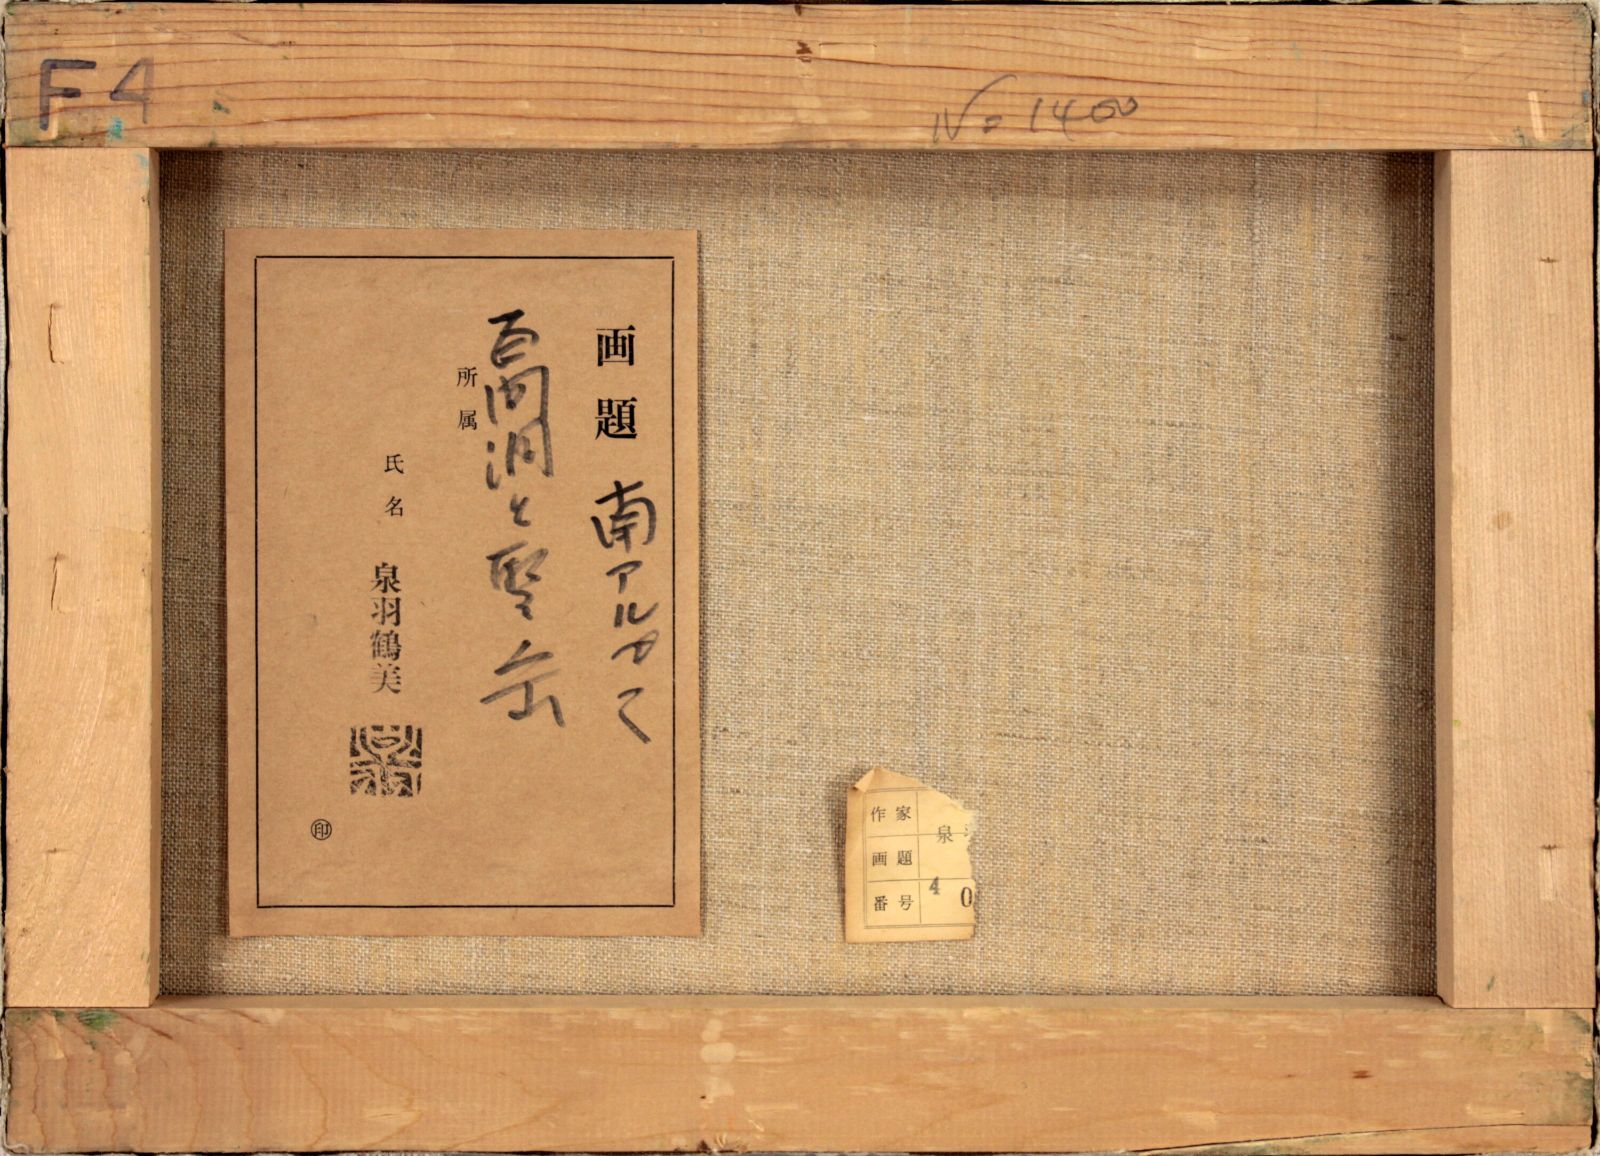 F4
N=1400
画題 南アルプス
百間洞と聖岳
所属
氏名 泉羽鶴美
印
作家 泉
画題
番号 4 0